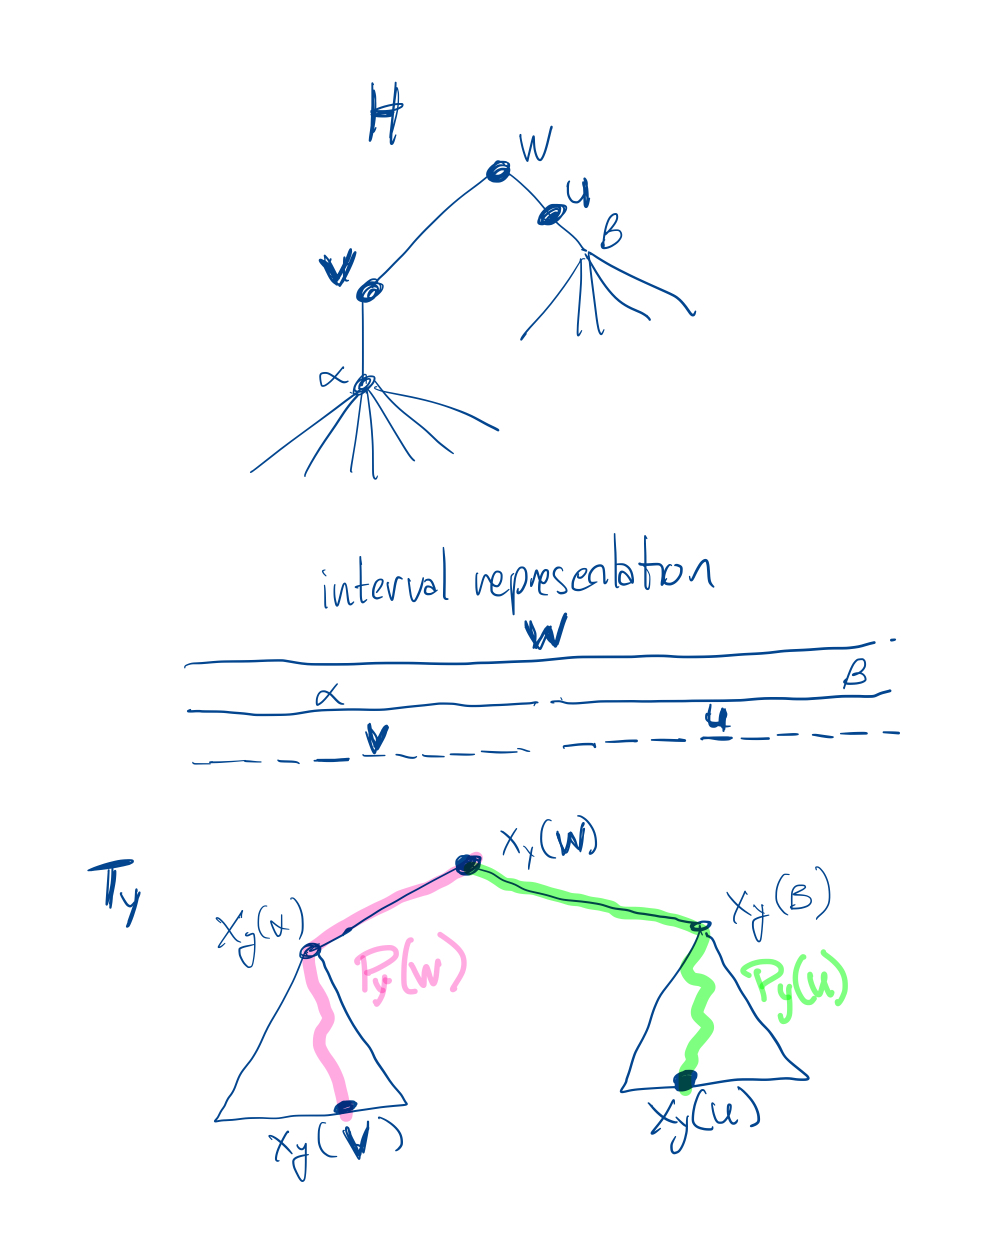 H
W
u
β
V
α
interval representation
W
α β
V u
x_y(W)
T_y x_y(α) x_y(β)
P_y(W) P_y(u)
x_y(V) x_y(u)